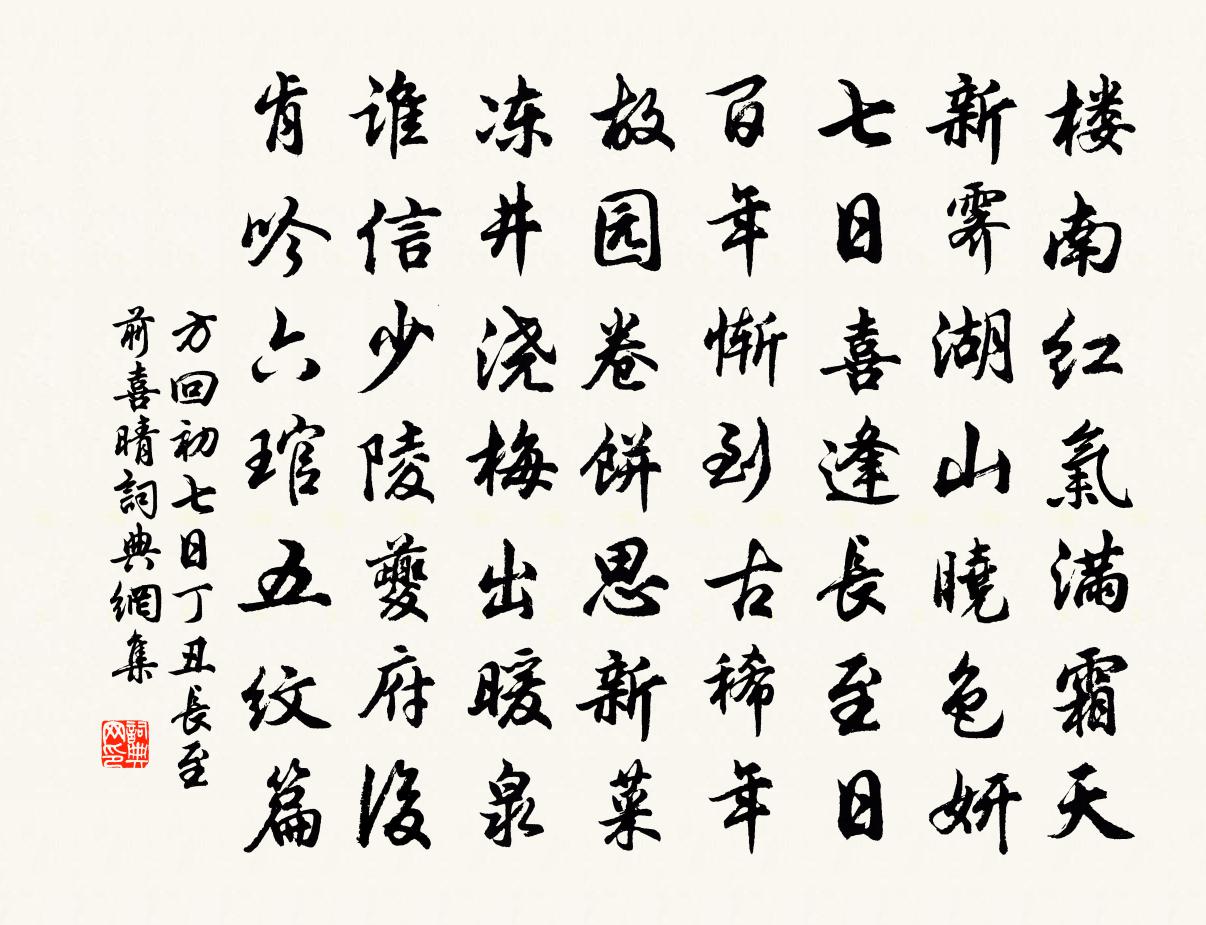 楼南红氣满霜天
新霁湖山曉色妍
七日喜逢長至日
百年惭到古稀年
故园卷餅思新菜
冻井浇梅出暖泉
谁信少陵夔府後
肯吟六琯五纹篇
方回初七日丁丑長至
前喜晴詞典網集
詞典网印